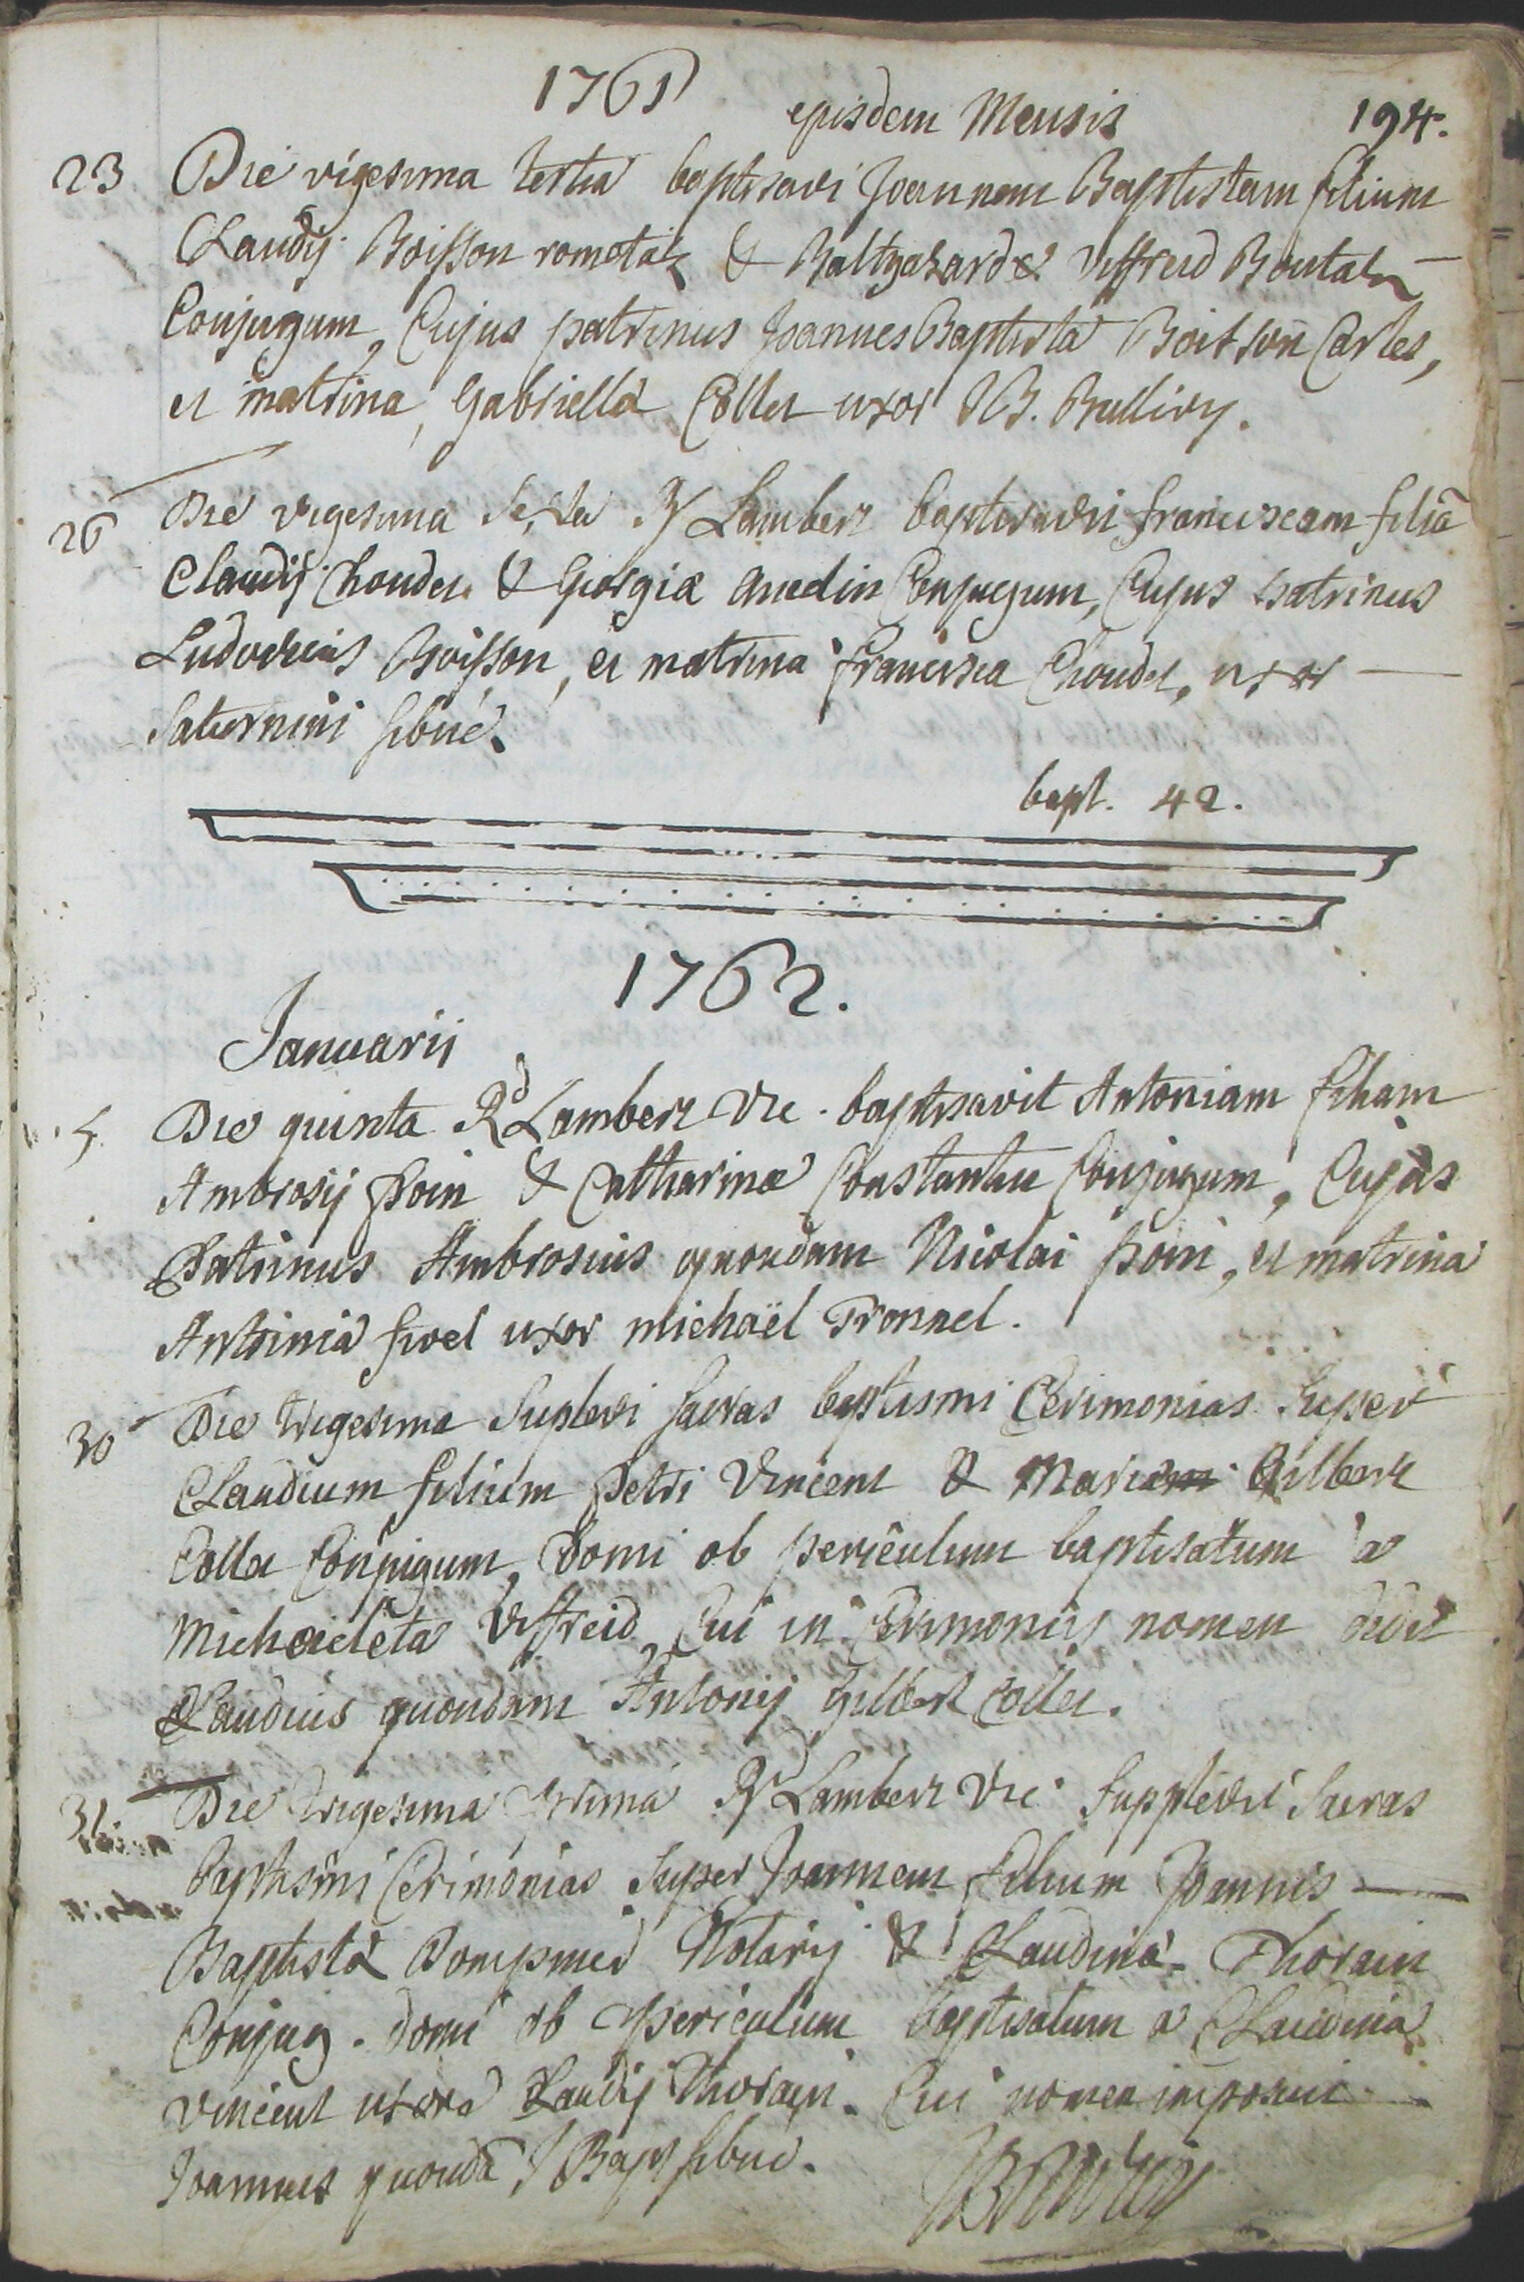 1761
ejusdem Mensis 194.
23 Die vigesima tertia baptisavi Joannem Baptistam filium
Claudij Boisson rometaz & Baltzazardæ Viffreid Boutaz
Conjugum, Cujus patrinus Joannes Baptista Boisson Carles,
et matrina, Gabriella Collet uxor JB. Bullivy.
26 Die vigesima sexta Rd Lambert baptisavit franciscam filiã
Claudij Choudet & Georgiæ Amedin Conjugum, Cujus patrinus
Ludovicus Boisson, et matrina francisca Choudet, uxor
Saturnini sibué.
bapt. 42.
1762.
Januarii
5. Die quinta Rd Lambert Vic. baptisavit Antoniam filiam
Ambrosij Poin & Catharinæ Constantin Conjugum, Cujus
Patrinus Ambrosius quondam Nicolai poin, et matrina
Antonia fivel uxor michaël Tronnel.
30 Die trigesima Suplevi Sacras baptismi Cerimonias Super
Claudium filium Petri Vincent & Mariæ Gilbert
Collet Conjugum, Domi ob periculum baptisatum a
Michaeleta Viffreid Cui in Cerimonijs nomen dedit
Claudius quondam Antonij Gilbert Collet.
31. Die trigesima prima Rd Lambert Vic. Supplevit Sacras
baptismi Cerimonias Super Joannem filium Joannis
Baptistæ Dompmed Notarij & Claudinæ Thorain
Conjug. domi ob periculum baptisatum a Claudina
Vincent uxore Claudij Thorain. Cui nomen imposuit
Joannes quondã J Bapt sibué.